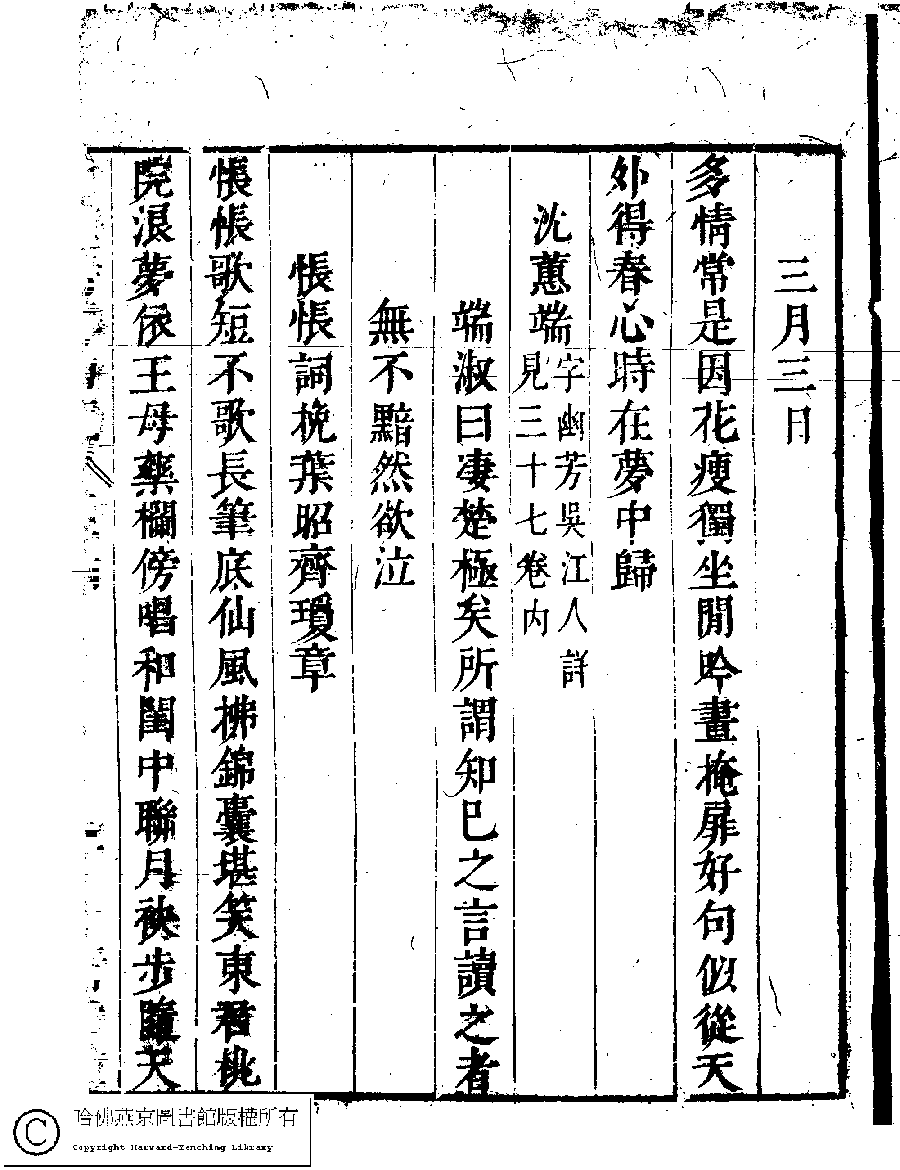 三月三日
多情常是因花瘦獨坐閒吟晝掩扉好句似從天
外得春心時在夢中歸
沈蕙端字幽芳吳江人詳
見三十七卷內
端淑曰凄楚極矣所謂知已之言讀之者
無不黯然欲泣
悵悵詞挽葉昭齊瓊章
悵悵歌短不歌長筆底仙風拂錦囊堪笑東君桃
院浪夢依王母藥欄傍唱和閨中聯月袂步隨天
哈佛燕京圖書館版權所有
Copyright Harvard-Yenching Library